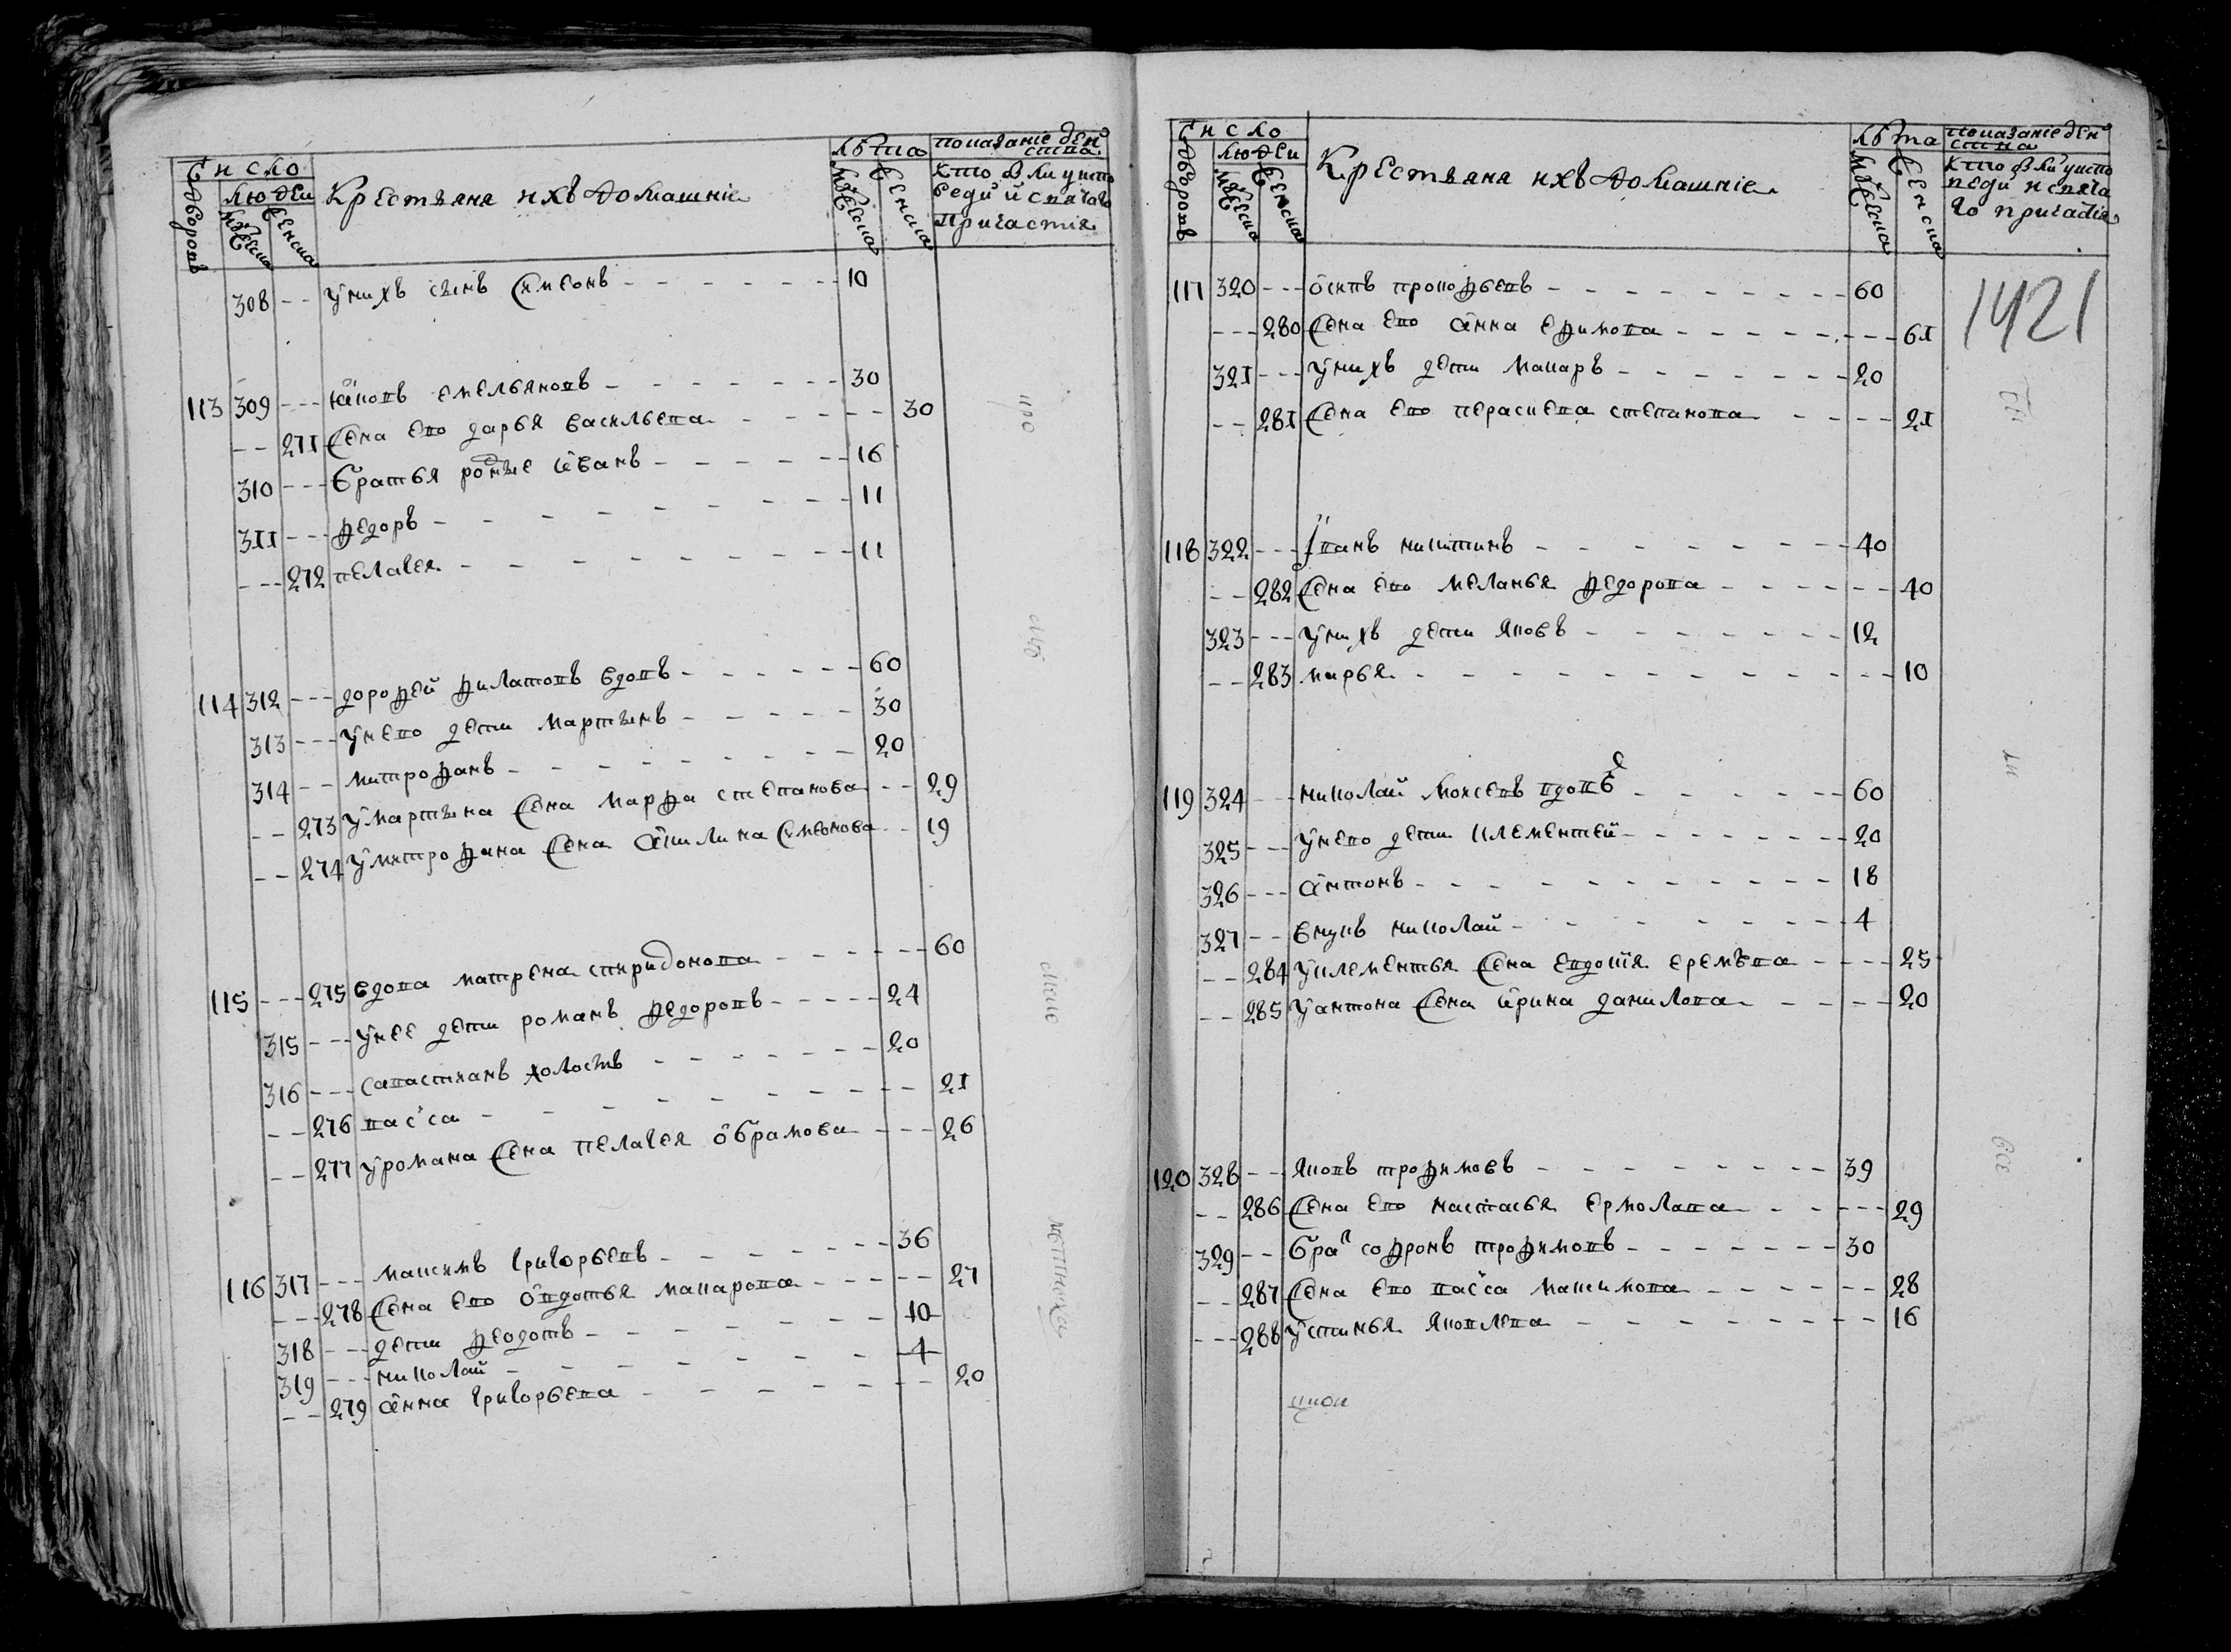 Число
Лѣта
показаніе дей
ства
дворовъ
людей
Крестьяне и ихъ домашніе
мужеска
женска
мужеска
женска
кто былъ у испо
веди и святаго
причастія
308 -- У нихъ сынъ Симеонъ ------ 10
113 309 --- Яковъ Емельяновъ ------ 30
-- 271 Жена ево Дарья Васильева ----- 30
310 --- Братья родные Иванъ ----- 16
311 --- Федоръ ------- 11
--- 272 Пелагея ------- 11
114 312 --- Дорофей Филатовъ вдовъ ------ 60
313 --- У нево дети Мартынъ ----- 30
314 -- Митрофанъ ------- 20
-- 273 У Мартына жена Марфа Степанова -- 29
-- 274 У Митрофана жена Акилина Симеонова -- 19
115 --- 275 Вдова Матрена Спиридонова ------ 60
315 --- У нее дети Романъ Федоровъ ----- 24
316 --- Савастиянъ холостъ ------- 20
-- 276 Васса --------- 21
-- 277 У Романа жена Пелагея Обрамова ---- 26
116 317 --- Максимъ Григорьевъ ------- 36
--- 278 Жена ево Овдотья Макарова ----- 27
318 --- Дети Федотъ ------- 10
319 --- Николай ------- 4
-- 279 Анна Григорьева ------- 20
Число
Лѣта
показаніе дей
ства
дворовъ
людей
Крестьяне и ихъ домашніе
мужеска
женска
мужеска
женска
кто былъ у испо
веди и свята
го причастія
1421
117 320 --- Осипъ Прокофьевъ --------- 60
--- 280 Жена ево Анна Ефимова -------- 61
321 --- У нихъ дети Макаръ ------- 20
-- 281 Жена ево Парасковья Степанова ---- 21
118 322 --- Иванъ Никитинъ -------- 40
-- 282 Жена ево Меланья Федорова ------- 40
323 --- У нихъ дети Яковъ ------- 12
-- 283 Марья ----------- 10
119 324 -- Николай Моисеевъ вдовъ ------ 60
325 -- У нево дети Клементей ------- 20
326 --- Антонъ ---------- 18
327 -- Внукъ Николай ------- 4
-- 284 У Клементья жена Евдотья Еремѣева ---- 25
-- 285 У Антона жена Ирина Данилова ----- 20
120 328 -- Яковъ Трофимовъ -------- 39
-- 286 Жена ево Настасья Ермолаева ------ 29
329 -- Братъ Софронъ Трофимовъ ------- 30
-- 287 Жена ево Васса Максимова ------- 28
--- 288 Устинья Яковлева -------- 16